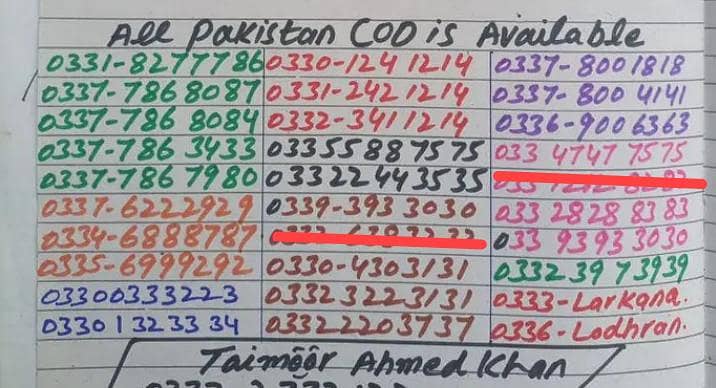 All Pakistan COD is Available
0331-8277786 0330-124 1214 0337-8001818
0337-786 8087 0331-242 1214 0337-800 4141
0337-786 8084 0332-341 1214 0336-900 6363
0337-786 3433 03355887575 033 4747 7575
0337-786 7980 03322443535
0337-6222929 0339-393 3030 033 2828 8383
0334-6888787 033 9393 3030
0335-6999292 0330-4303131 0332 39 73939
03300333223 03323223131 0333-Larkana.
0330 1 32 33 34 03322203737 0336-Lodhran.
Taimoor Ahmed Khan